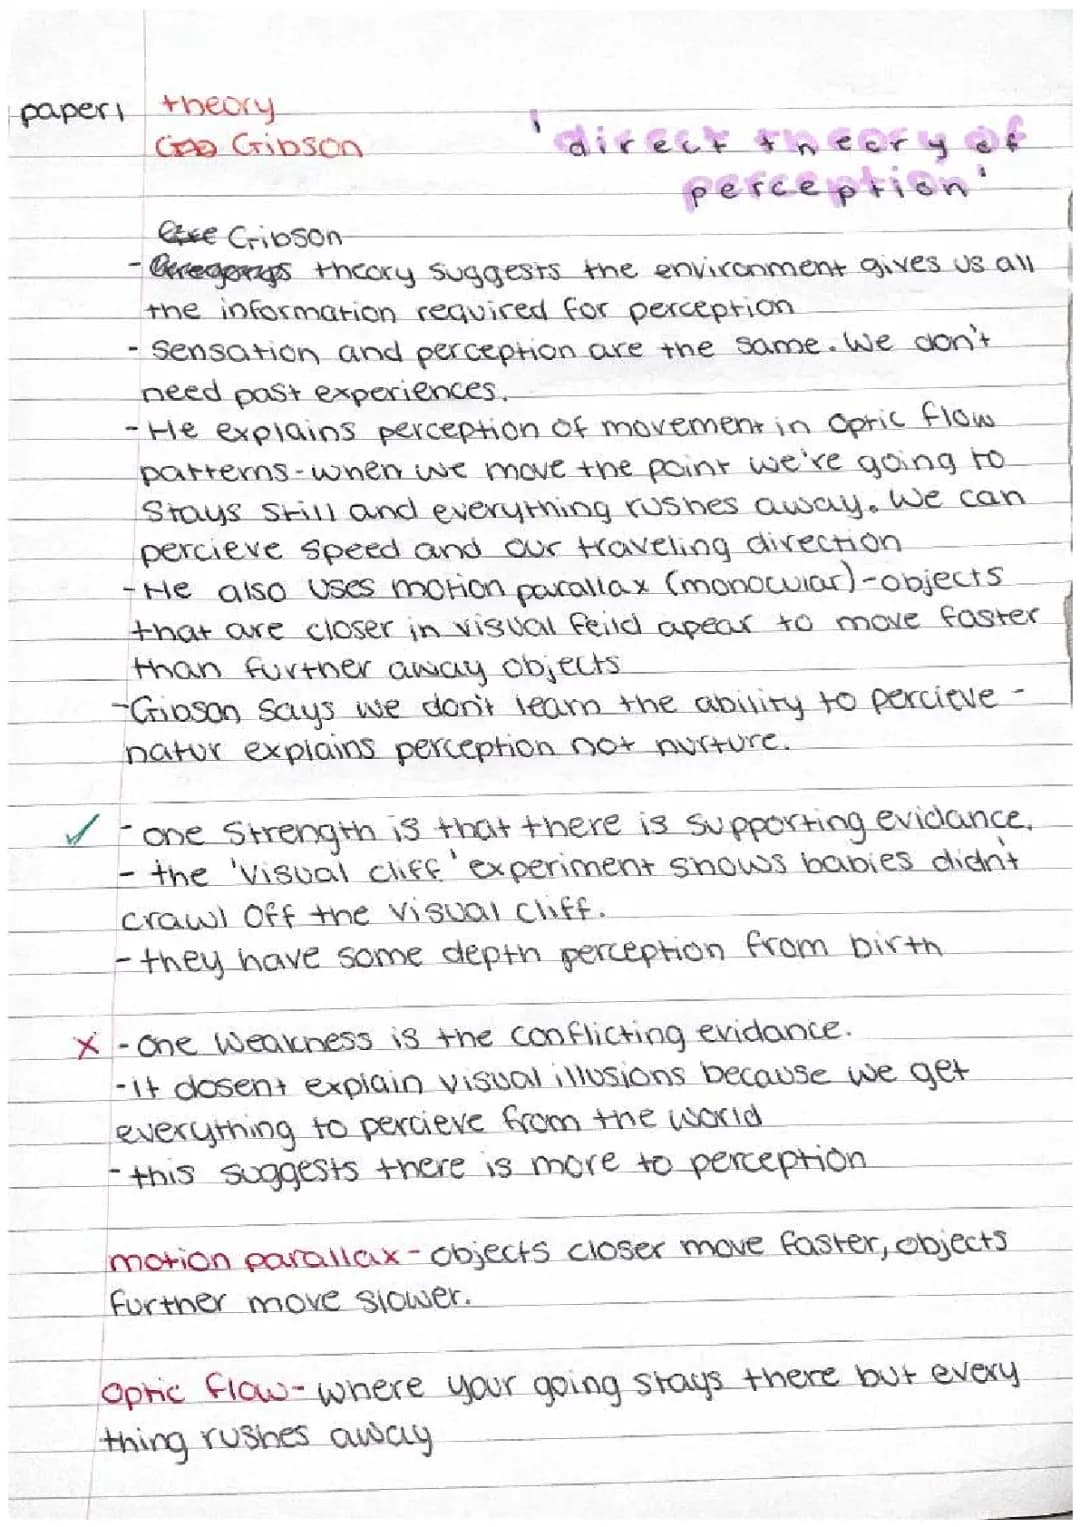 paper1 theory
Gibson
'direct theory of
perception'
Gibson
- theory suggests the environment gives us all
the information required for perception
- Sensation and perception are the same. We don't
need past experiences.
- He explains perception of movement in Optic flow
patterns - when we move the point we're going to
stays still and everything rushes away. We can
percieve speed and our traveling direction
- He also uses motion parallax (monocular) - objects
that are closer in visual feild apear to move faster
than further away objects
- Gibson says we don't learn the ability to percieve -
natur explains perception not nurture.
✓ - one Strength is that there is supporting evidance.
- the 'visual cliff' experiment shows babies didn't
crawl off the visual cliff.
- they have some depth perception from birth
x - One weakness is the conflicting evidance.
- it dosent explain visual illusions because we get
everything to percieve from the world
- this suggests there is more to perception
motion parallax - objects closer move faster, objects
further move slower.
Optic flow - where your going stays there but every
thing rushes away